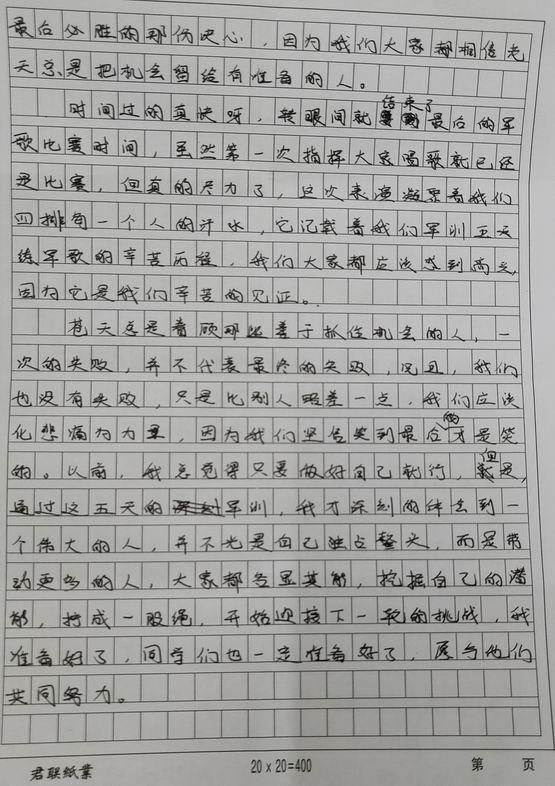 最后必胜的那份决心，因为我们大家都相信老
天总是把机会留给有准备的人。
时间过的真快呀，转眼间就结束了最后的军
歌比赛时间，虽然第一次指挥大家唱歌就已经
是比赛，但真的尽力了，这次表演凝聚着我们
四排每一个人的汗水，它记载着我们军训五天
练军歌的辛苦历程，我们大家都应该感到高兴，
因为它是我们辛苦的见证。
苍天总是眷顾那些善于抓住机会的人，一
次的失败，并不代表最终的失败，况且，我们
也没有失败，只是比别人略差一点，我们应该
化悲痛为力量，因为我们坚信笑到最后的才是笑
的。以前，我总觉得只要做好自己就行，但是，
通过这五天的军训，我才深刻的体会到一
个伟大的人，并不光是自己独占鳌头，而是带
动更多的人，大家都各显其能，挖掘自己的潜
能，拧成一股绳，开始迎接下一轮的挑战，我
准备好了，同学们也一定准备好了，愿与他们
共同努力。
君联纸业 20×20=400 第 页